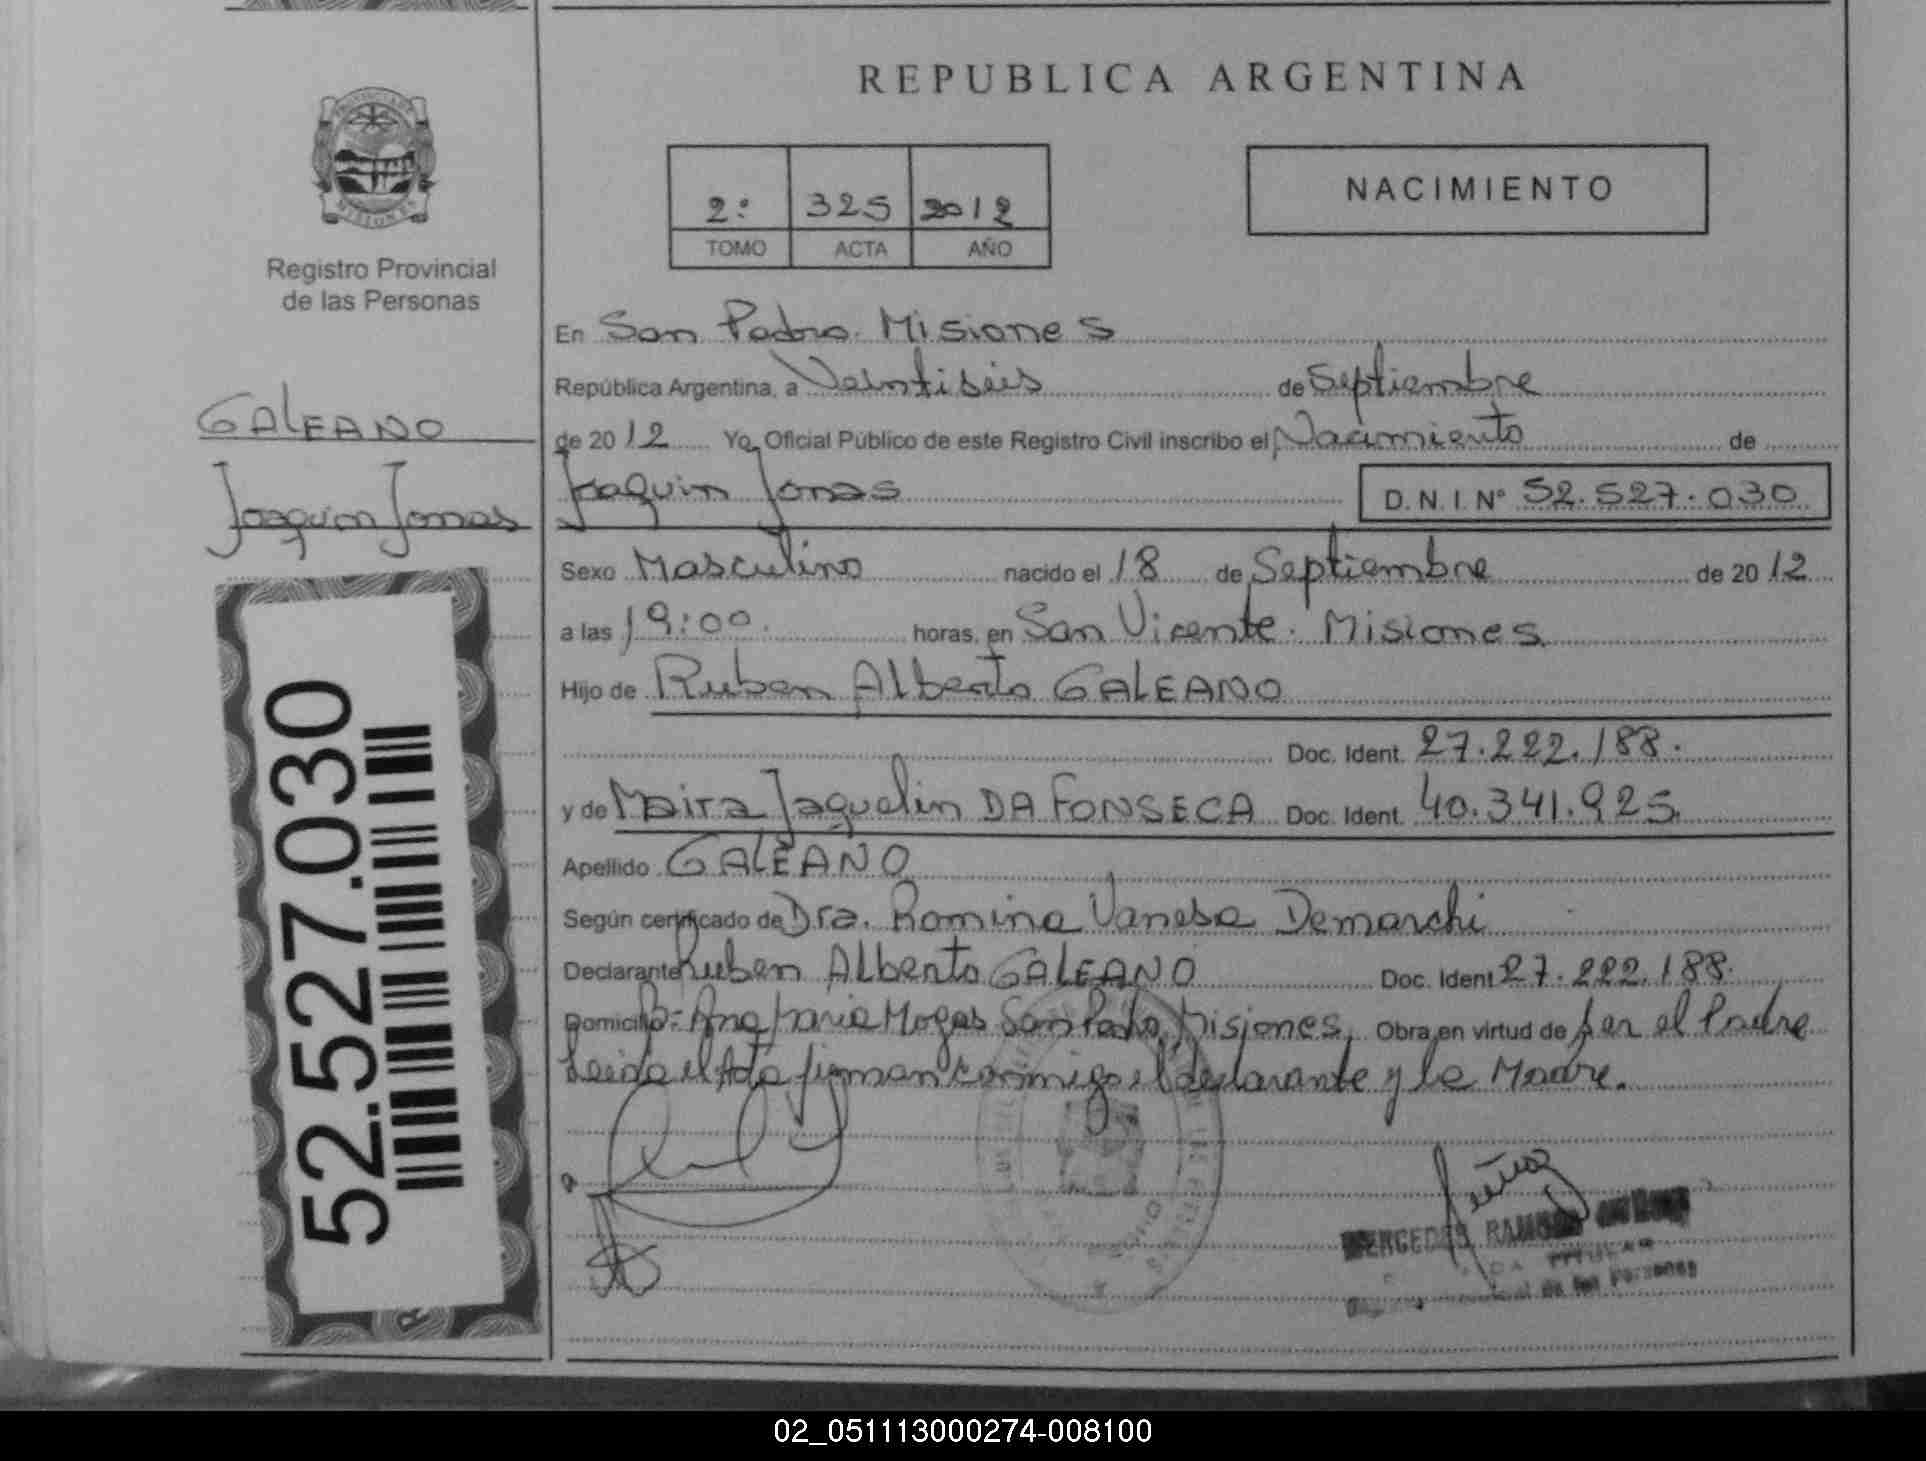 REPUBLICA ARGENTINA
PROVINCIA DE
MISIONES
Registro Provincial
de las Personas
2º 325 2012
TOMO ACTA AÑO
NACIMIENTO
GALEANO
Joaquin Jonas
52.527.030
En San Pedro. Misiones
República Argentina, a Veintiseis de Septiembre
de 2012 Yo, Oficial Público de este Registro Civil inscribo el Nacimiento de
Joaquin Jonas D.N.I. Nº 52.527.030
Sexo Masculino nacido el 18 de Septiembre de 2012
a las 19:00. horas, en San Vicente. Misiones
Hijo de Ruben Alberto GALEANO
Doc. Ident. 27.222.188.
y de Maira Jaquelin DA FONSECA Doc. Ident. 40.341.925.
Apellido GALEANO
Según certificado de Dra. Romina Vanesa Demarchi
Declarante Ruben Alberto GALEANO Doc. Ident 27.222.188.
Domicilio Bº Ana Maria Mogas San Pedro, Misiones. Obra en virtud de ser el Padre
Leida el Acta firman conmigo el declarante y la Madre.
MERCEDES RAMONA
TITULAR
de las Personas
02_051113000274-008100